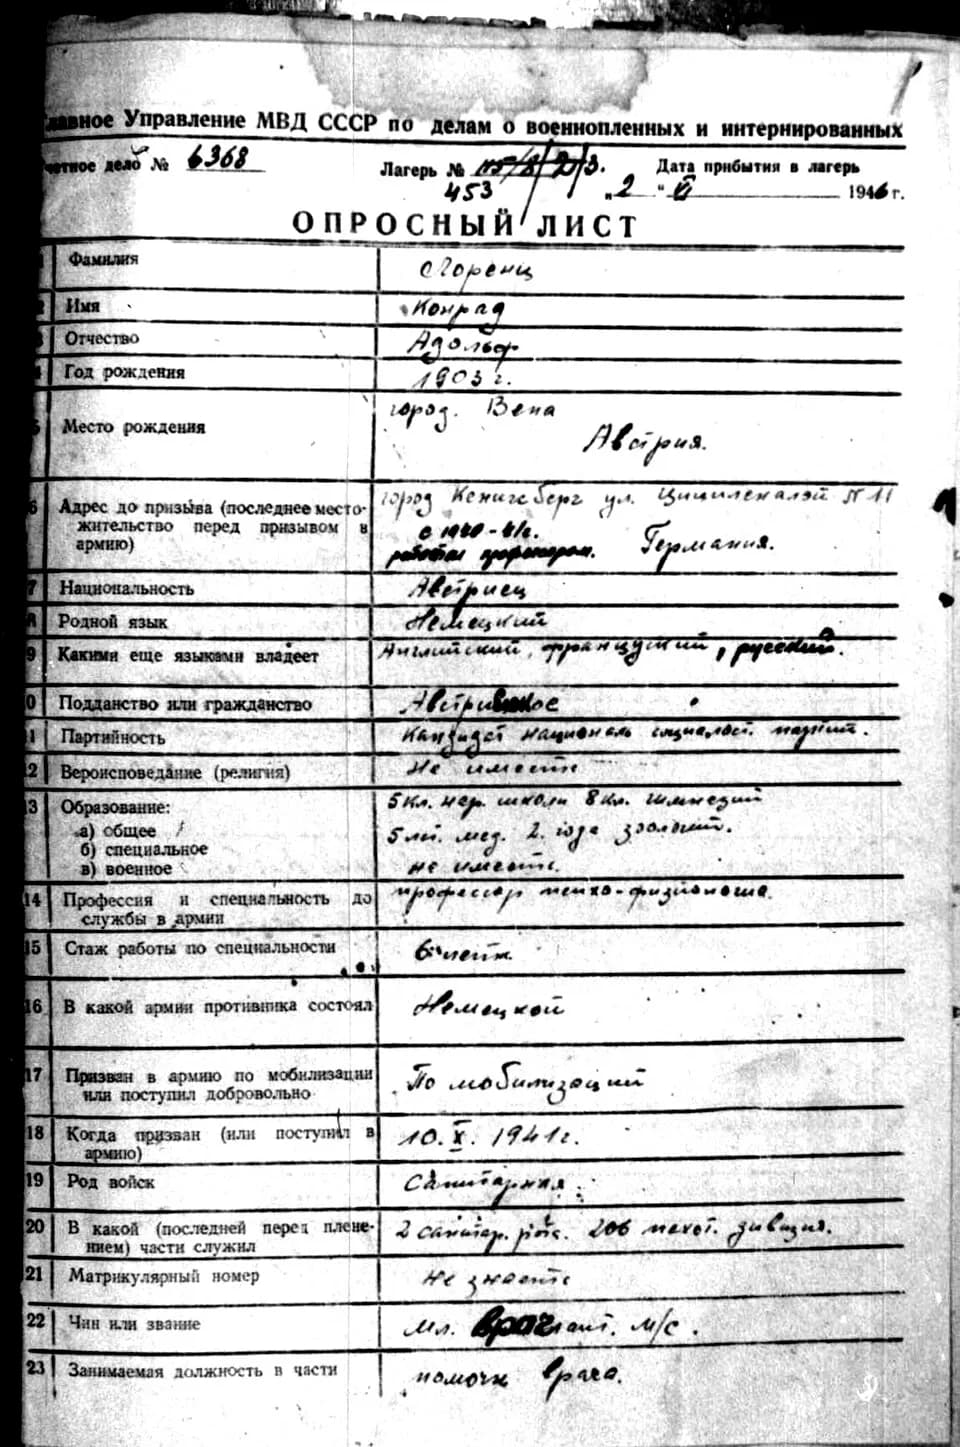 Главное Управление МВД СССР по делам о военнопленных и интернированных
четное дело № 6368
Лагерь № /2/3. Дата прибытия в лагерь
453 „2“ VI 1946 г.
ОПРОСНЫЙ ЛИСТ
Фамилия Лоренц
2 Имя Конрад
3 Отчество Адольф
4 Год рождения 1903 г.
5 Место рождения город. Вена
Австрия.
6 Адрес до призыва (последнее место- город Кенигсберг ул. № 11
жительство перед призывом в с 1940-41г.
армию) работал профессором. Германия.
7 Национальность Австриец
8 Родной язык Немецкий
9 Какими еще языками владеет Английский, французкий, русский.
0 Подданство или гражданство
1 Партийность Кандидат националь социалист. партии.
2 Вероисповедание (религия) не имеет
3 Образование: 5 кл. нар. школи 8 кл. гимнезий
а) общее 5 лет. мед. 2. года зоологий.
б) специальное
в) военное не имеет.
14 Профессия и специальность до профессор психо-физиологие.
службы в армии
15 Стаж работы по специальности 6 летн
16 В какой армии противника состоял Немецкой
17 Призван в армию по мобилизации По мобилизаций
или поступил добровольно
18 Когда призван (или поступил в 10. X. 1941г.
армию)
19 Род войск Санитарная
20 В какой (последней перед плене- 2 санитар. рота. 206 пехот. дивизия.
нием) части служил
21 Матрикулярный номер не знает
22 Чин или звание мл. врач м/с.
23 Занимаемая должность в части помочн врача.